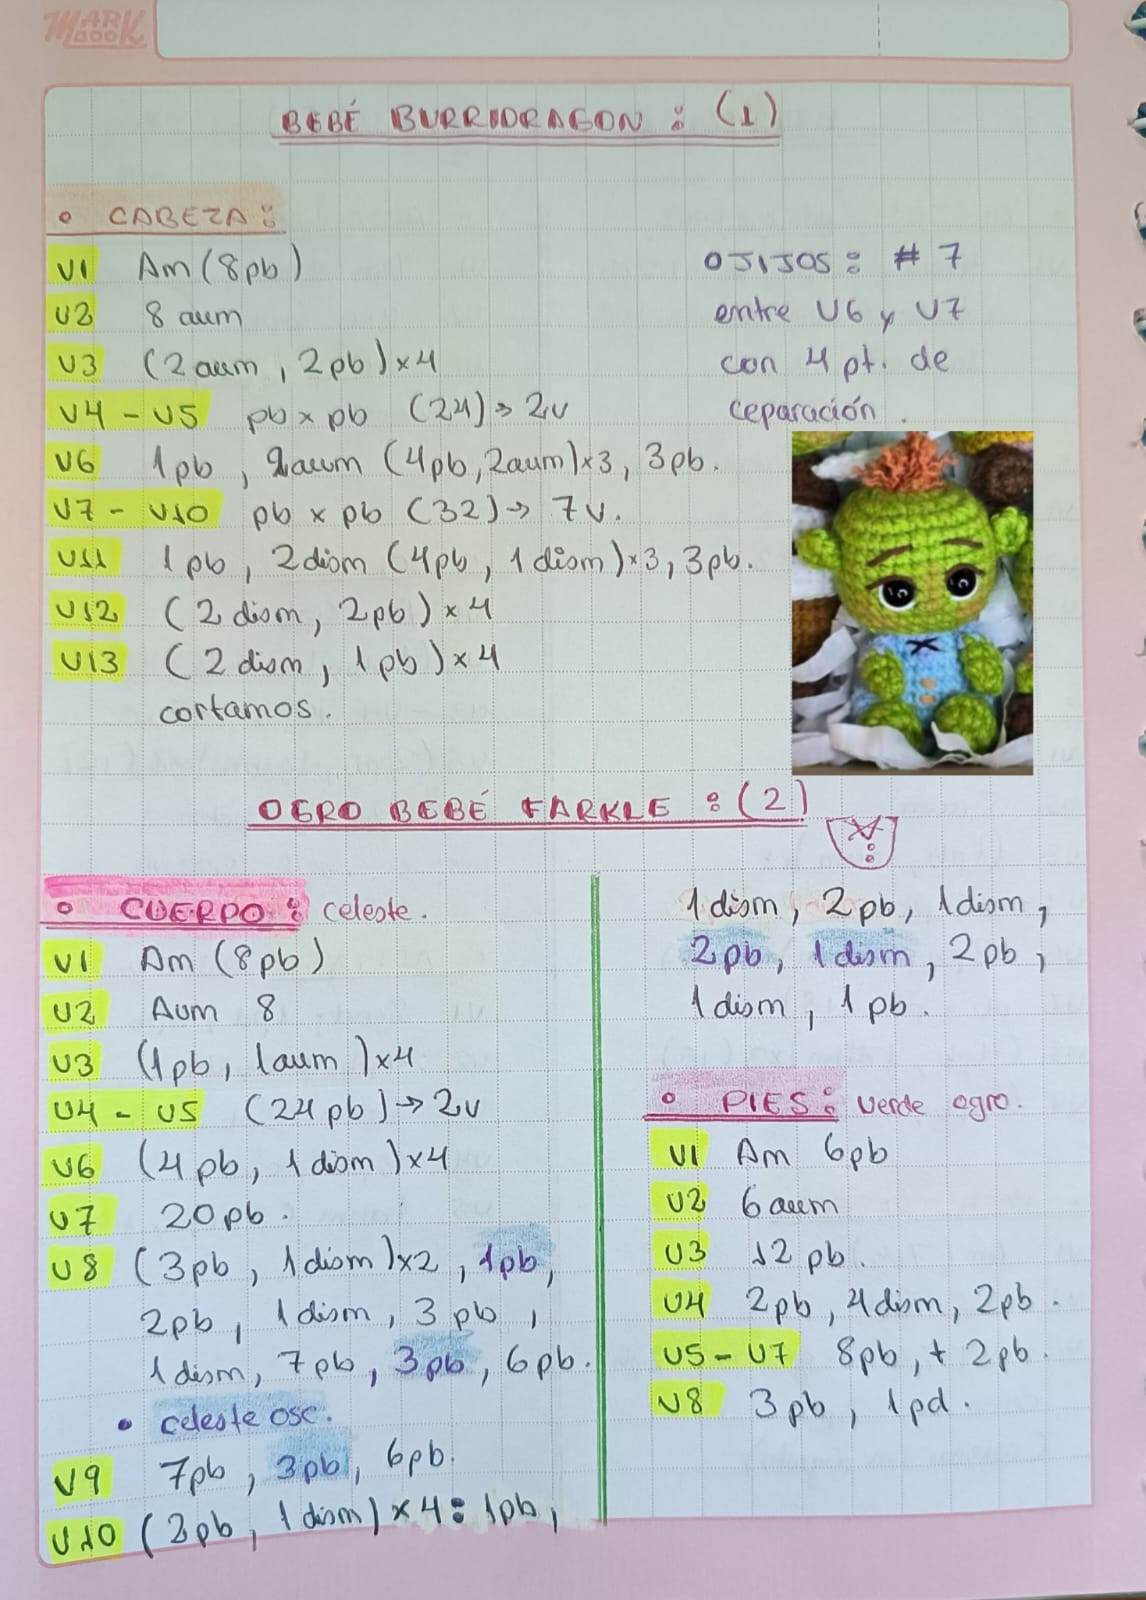 MARK BOOK
BEBÉ BURRIDRAGON : (1)
• CABEZA :
V1 Am (8pb)
V2 8 aum
V3 (2 aum, 2pb) x4
V4 - V5 pb x pb (24) → 2v
V6 1pb, 2aum (4pb, 2aum) x3, 3pb.
V7 - V10 pb x pb (32) → 7v.
V11 1pb, 2dism (4pb, 1dism) x3, 3pb.
V12 (2 dism, 2pb) x 4
V13 (2 dism, 1pb) x 4
cortamos.
OJIJOS : # 7
entre V6 y V7
con 4 pt. de
ceparación.
OGRO BEBÉ FARKLE : (2)
• CUERPO : celeste.
V1 Am (8pb)
V2 Aum 8
V3 (1pb, 1aum) x4
V4 - V5 (24pb) → 2v
V6 (4pb, 1dism) x4
V7 20pb.
V8 (3pb, 1dism) x2, 1pb,
2pb, 1dism, 3pb,
1dism, 7pb, 3pb, 6pb.
• celeste osc.
V9 7pb, 3pb, 6pb.
V10 (2pb, 1dism) x 4 : 1pb,
1dism, 2pb, 1dism,
2pb, 1dism, 2pb,
1dism, 1pb.
• PIES : verde ogro.
V1 Am 6pb
V2 6aum
V3 12pb.
V4 2pb, 4dism, 2pb.
V5 - V7 8pb, + 2pb.
V8 3pb, 1pd.